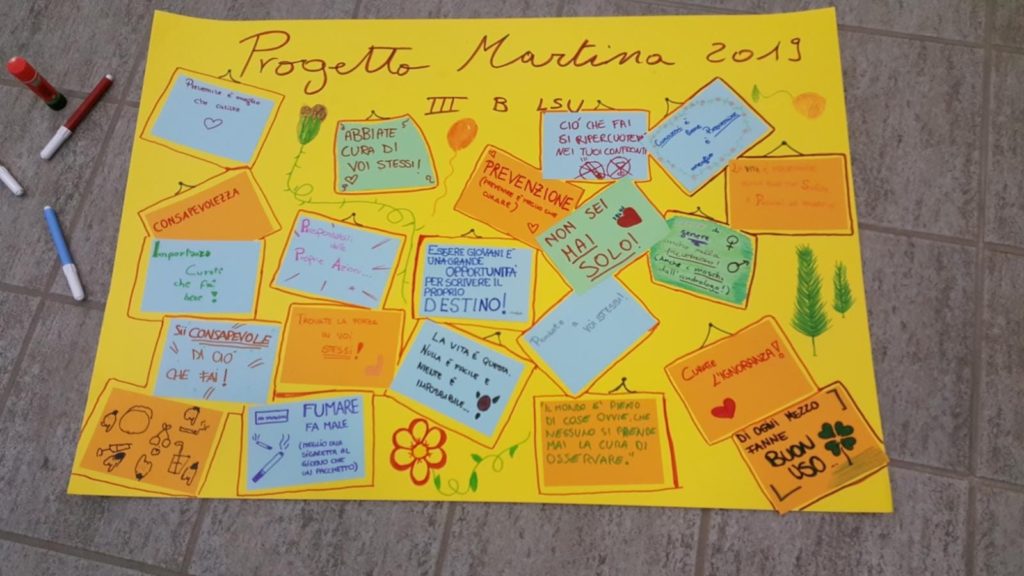 Progetto Martina 2019
III B LSU
Prevenire è meglio
che curare
ABBIATE
CURA DI
VOI STESSI!
CIÒ CHE FAI
SI RIPERCUOTERÀ
NEI TUOI CONFRONTI
Prevenire
meglio
CONSAPEVOLEZZA
PREVENZIONE
(PREVENIRE È MEGLIO CHE
CURARE)
NON SEI
MAI
SOLO!
genere
Importanza
Curate
che fa
bene!
Responsabili delle
Proprie Azioni...
ESSERE GIOVANI È
UNA GRANDE
OPPORTUNITÀ
PER SCRIVERE IL
PROPRIO
DESTINO!
Pensate a voi stessi!
Sii CONSAPEVOLE
DI CIÒ
CHE FAI!
TROVATE LA FORZA
IN VOI
STESSI!
LA VITA È QUESTA,
NULLA È FACILE E
NIENTE È
IMPOSSIBILE...
CURATE
L'IGNORANZA!
FUMARE
FA MALE
(MEGLIO UNA
SIGARETTA AL
GIORNO CHE
UN PACCHETTO)
"IL MONDO È PIENO
DI COSE OVVIE, CHE
NESSUNO SI PRENDE
MAI LA CURA DI
OSSERVARE."
DI OGNI MEZZO
FANNE
BUON
USO...